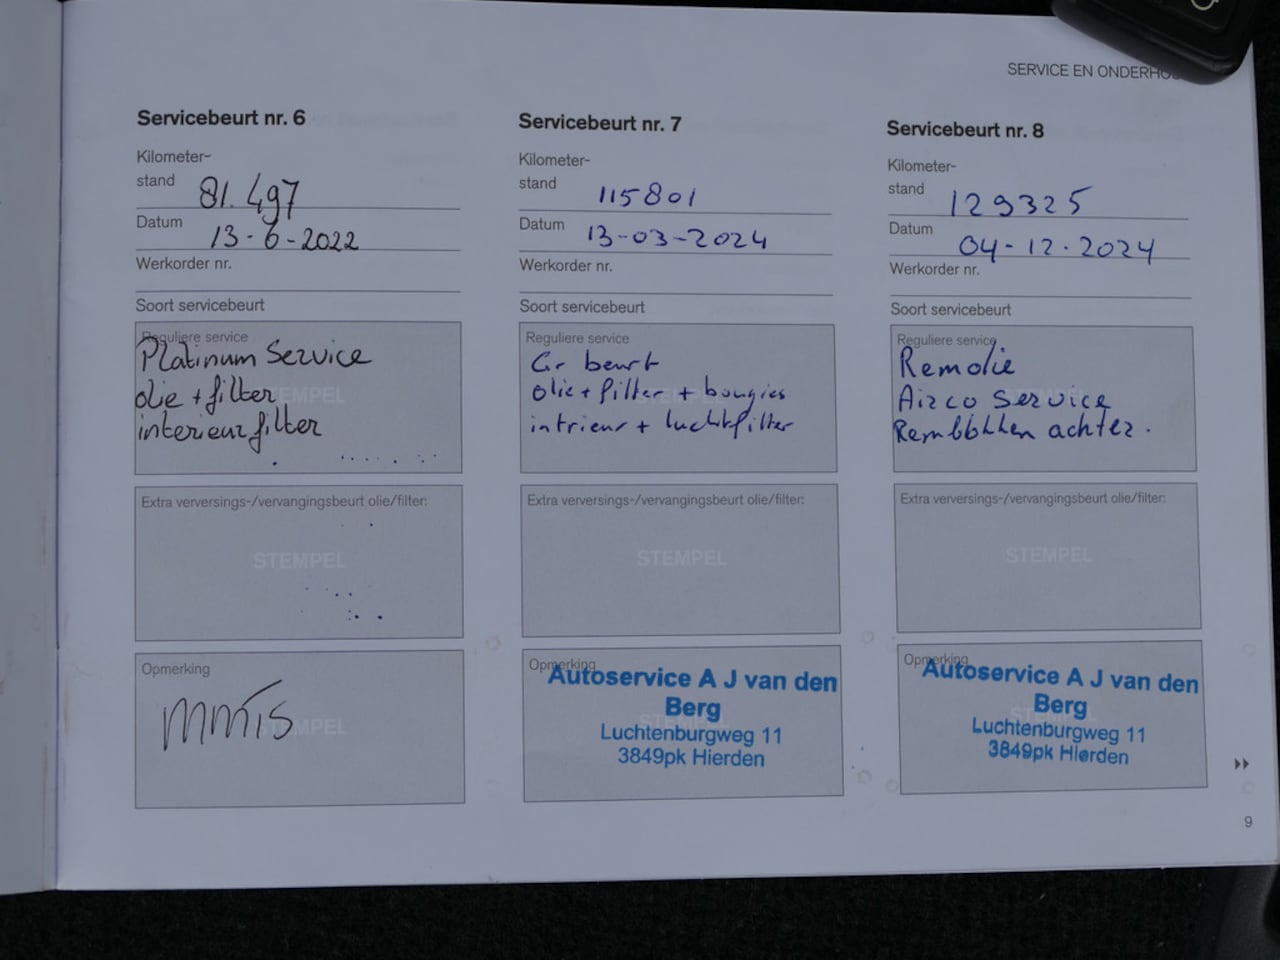 SERVICE EN ONDERHO
Servicebeurt nr. 6
Kilometer-
stand 81.497
Datum 13-6-2022
Werkorder nr.
Soort servicebeurt
Reguliere service
Platinum Service
olie + filter
interieur filter
STEMPEL
Extra verversings-/vervangingsbeurt olie/filter:
STEMPEL
Opmerking
STEMPEL
Servicebeurt nr. 7
Kilometer-
stand 115801
Datum 13-03-2024
Werkorder nr.
Soort servicebeurt
Reguliere service
Gr beurt
olie + filter + bougies
intrieur + luchtfilter
STEMPEL
Extra verversings-/vervangingsbeurt olie/filter:
STEMPEL
Opmerking
Autoservice A J van den
Berg
STEMPEL
Luchtenburgweg 11
3849pk Hierden
Servicebeurt nr. 8
Kilometer-
stand 129325
Datum 04-12-2024
Werkorder nr.
Soort servicebeurt
Reguliere service
Remolie
Airco Service
achter.
STEMPEL
Extra verversings-/vervangingsbeurt olie/filter:
STEMPEL
Opmerking
Autoservice A J van den
Berg
STEMPEL
Luchtenburgweg 11
3849pk Hierden
9